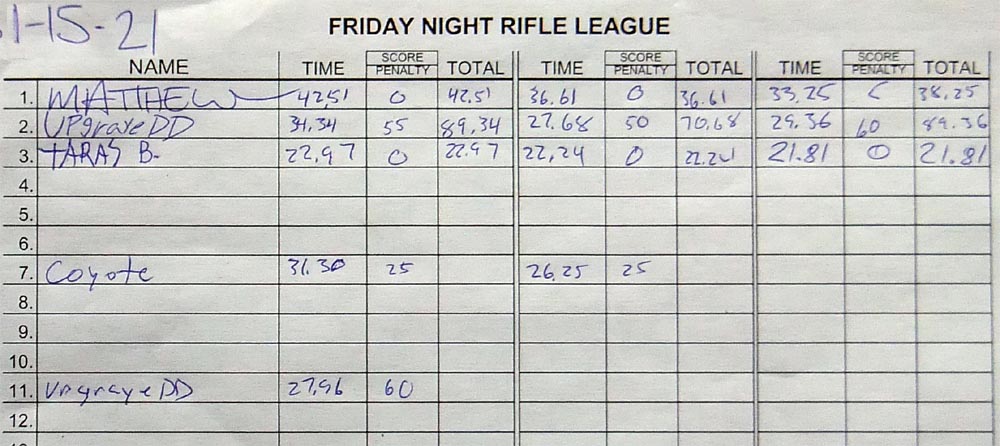 1-15-21
FRIDAY NIGHT RIFLE LEAGUE
NAME TIME SCORE PENALTY TOTAL TIME SCORE PENALTY TOTAL TIME SCORE PENALTY TOTAL
1. MATTHEW 42.51 0 42.51 36.61 0 36.61 33.25 5 38.25
2. UPgrayeDD 34.34 55 89.34 27.68 50 70.68 29.36 60 89.36
3. TARAS B. 22.97 0 22.97 22.24 0 22.24 21.81 0 21.81
4.
5.
6.
7. Coyote 31.30 25 26.25 25
8.
9.
10.
11. UpgrayeDD 27.96 60
12.